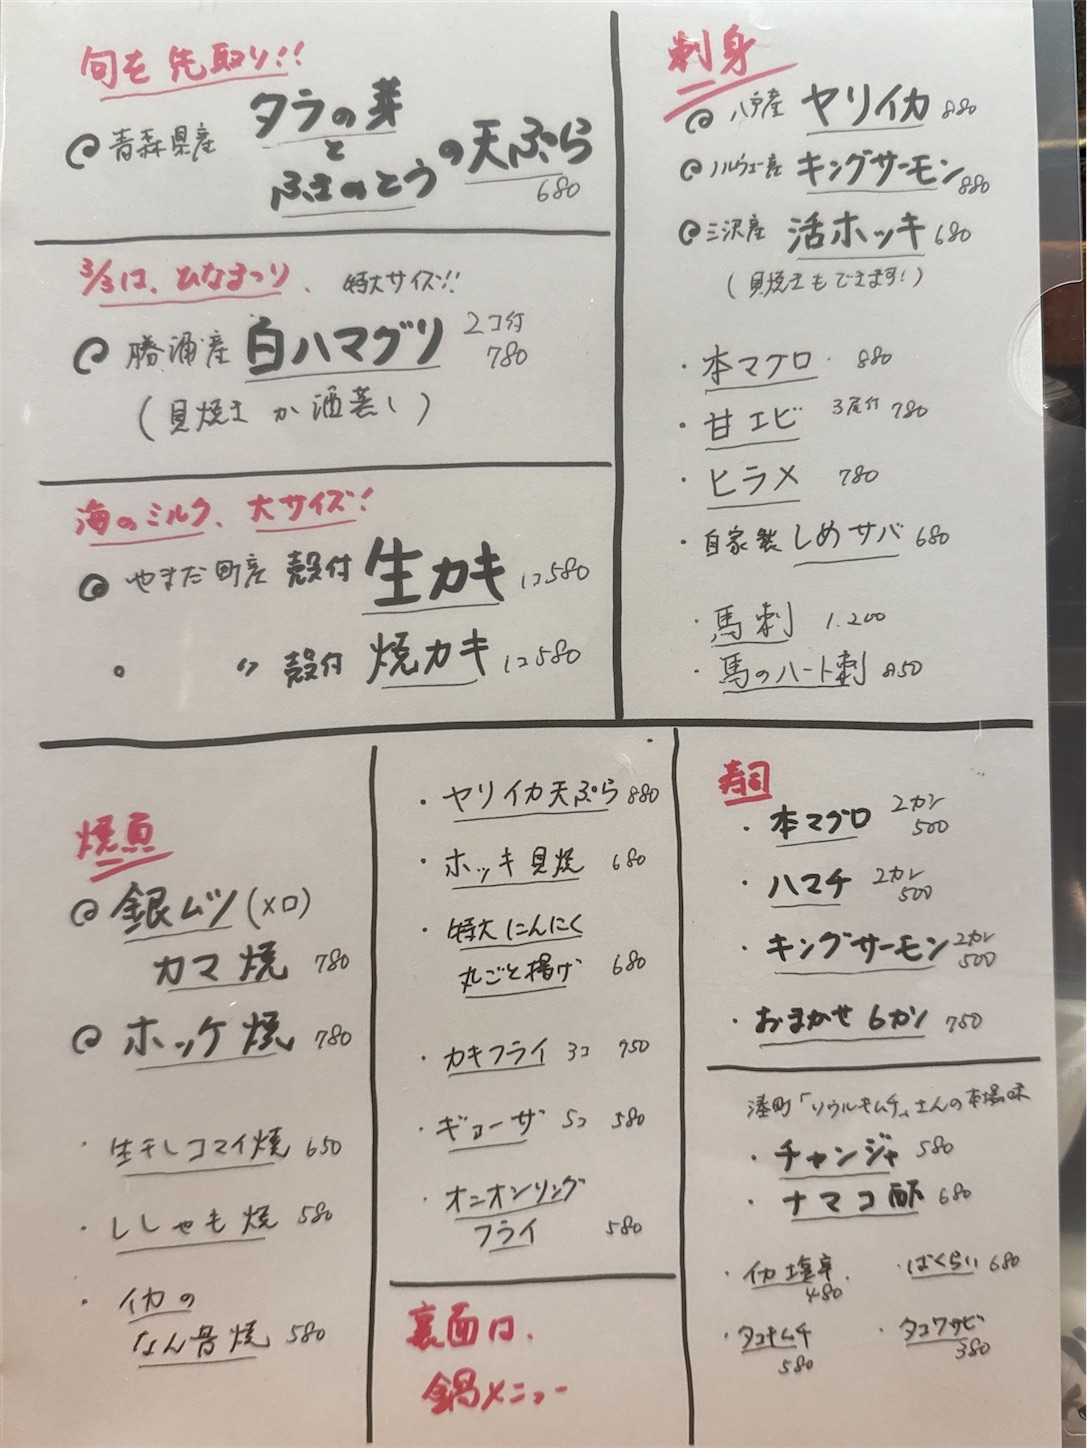 旬を先取り!!
◎青森県産 タラの芽
と
ふきのとう の天ぷら
680
3/3は、ひなまつり、特大サイズ!!
◎勝浦産 白ハマグリ 2コ付
780
(貝焼き か 酒蒸し)
海のミルク、大サイズ!
◎やまだ町産 殻付 生カキ 1コ580
。 〃 殻付 焼カキ 1コ580
刺身
◎八戸産 ヤリイカ 880
◎ノルウェー産 キングサーモン 880
◎三沢産 活ホッキ 680
(貝焼きもできます!)
・本マグロ 880
・甘エビ 3尾付 780
・ヒラメ 780
・自家製しめサバ 680
・馬刺 1.200
・馬のハート刺 850
焼魚
◎銀ムツ(メロ)
カマ焼 780
◎ホッケ焼 780
・生干しコマイ焼 650
・ししゃも焼 580
・イカの
なん骨焼 580
・ヤリイカ天ぷら 880
・ホッキ貝焼 680
・特大にんにく
丸ごと揚げ 680
・カキフライ 3コ 750
・ギョーザ 5コ 580
・オニオンリング
フライ 580
裏面は、
鍋メニュー
寿司
・本マグロ 2カン
500
・ハマチ 2カン
500
・キングサーモン 2カン
500
・おまかせ6カン 750
湊町「ソウルキムチ」さんの本場味
・チャンジャ 580
・ナマコ酢 680
・イカ塩辛 480
・ばくらい 680
・タコキムチ 580
・タコワサビ 380